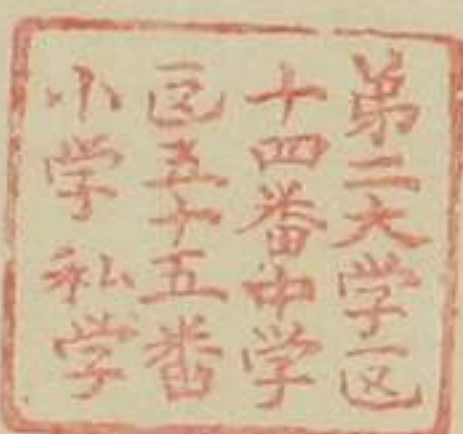 第二大学区
十四番中学
区五十五番
小学私学